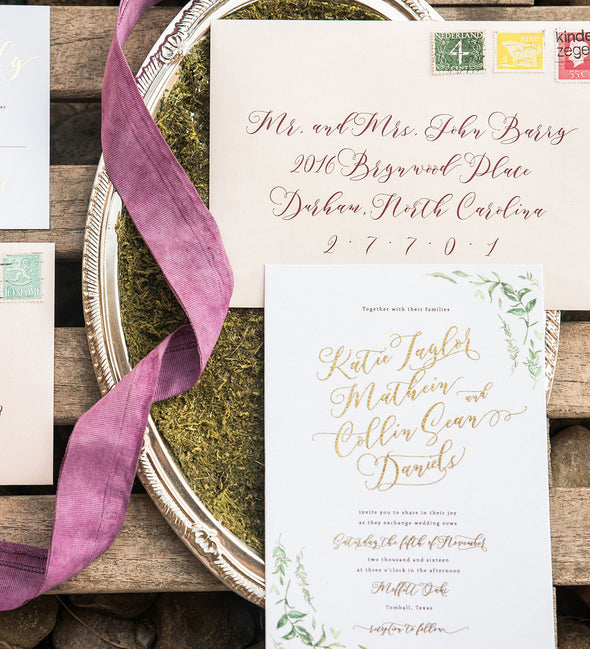 NEDERLAND
4
CENT
EIRE
5
kinde
zege
55c
Mr. and Mrs. John Barry
2016 Brynwood Place
Durham, North Carolina
2 · 7 · 7 · 0 · 1
10
Together with their families
Katie Taylor
Mathein and
Collin Sean
Daniels
invite you to share in their joy
as they exchange wedding vows
Saturday the fifth of November
two thousand and sixteen
at three o'clock in the afternoon
Moffitt Oaks
Tomball, Texas
reception to follow